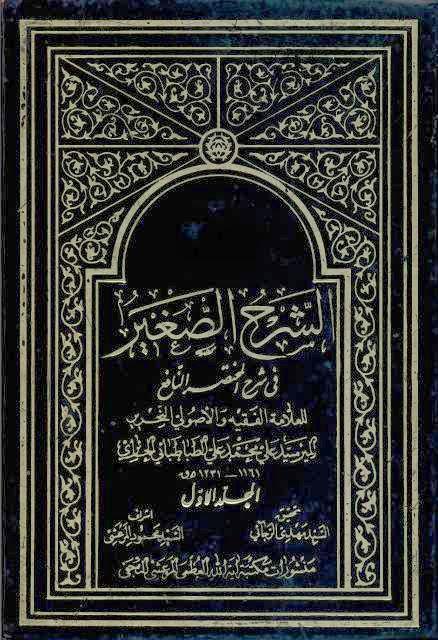 الشَّرْحُ الصَّغير
في شرح المختصر النافع
للعلامة الفقيه والأصولي النحرير
المير سيد علي محمد علي الطباطبائي الحائري
١١٦١ – ١٢٣١ ه‍ ق
المجلد الأول
تحقيق
السيد مهدي الرجائي
اشراف
السيد محمود المرعشي
منشورات مكتبة آية الله العظمى المرعشي النجفي